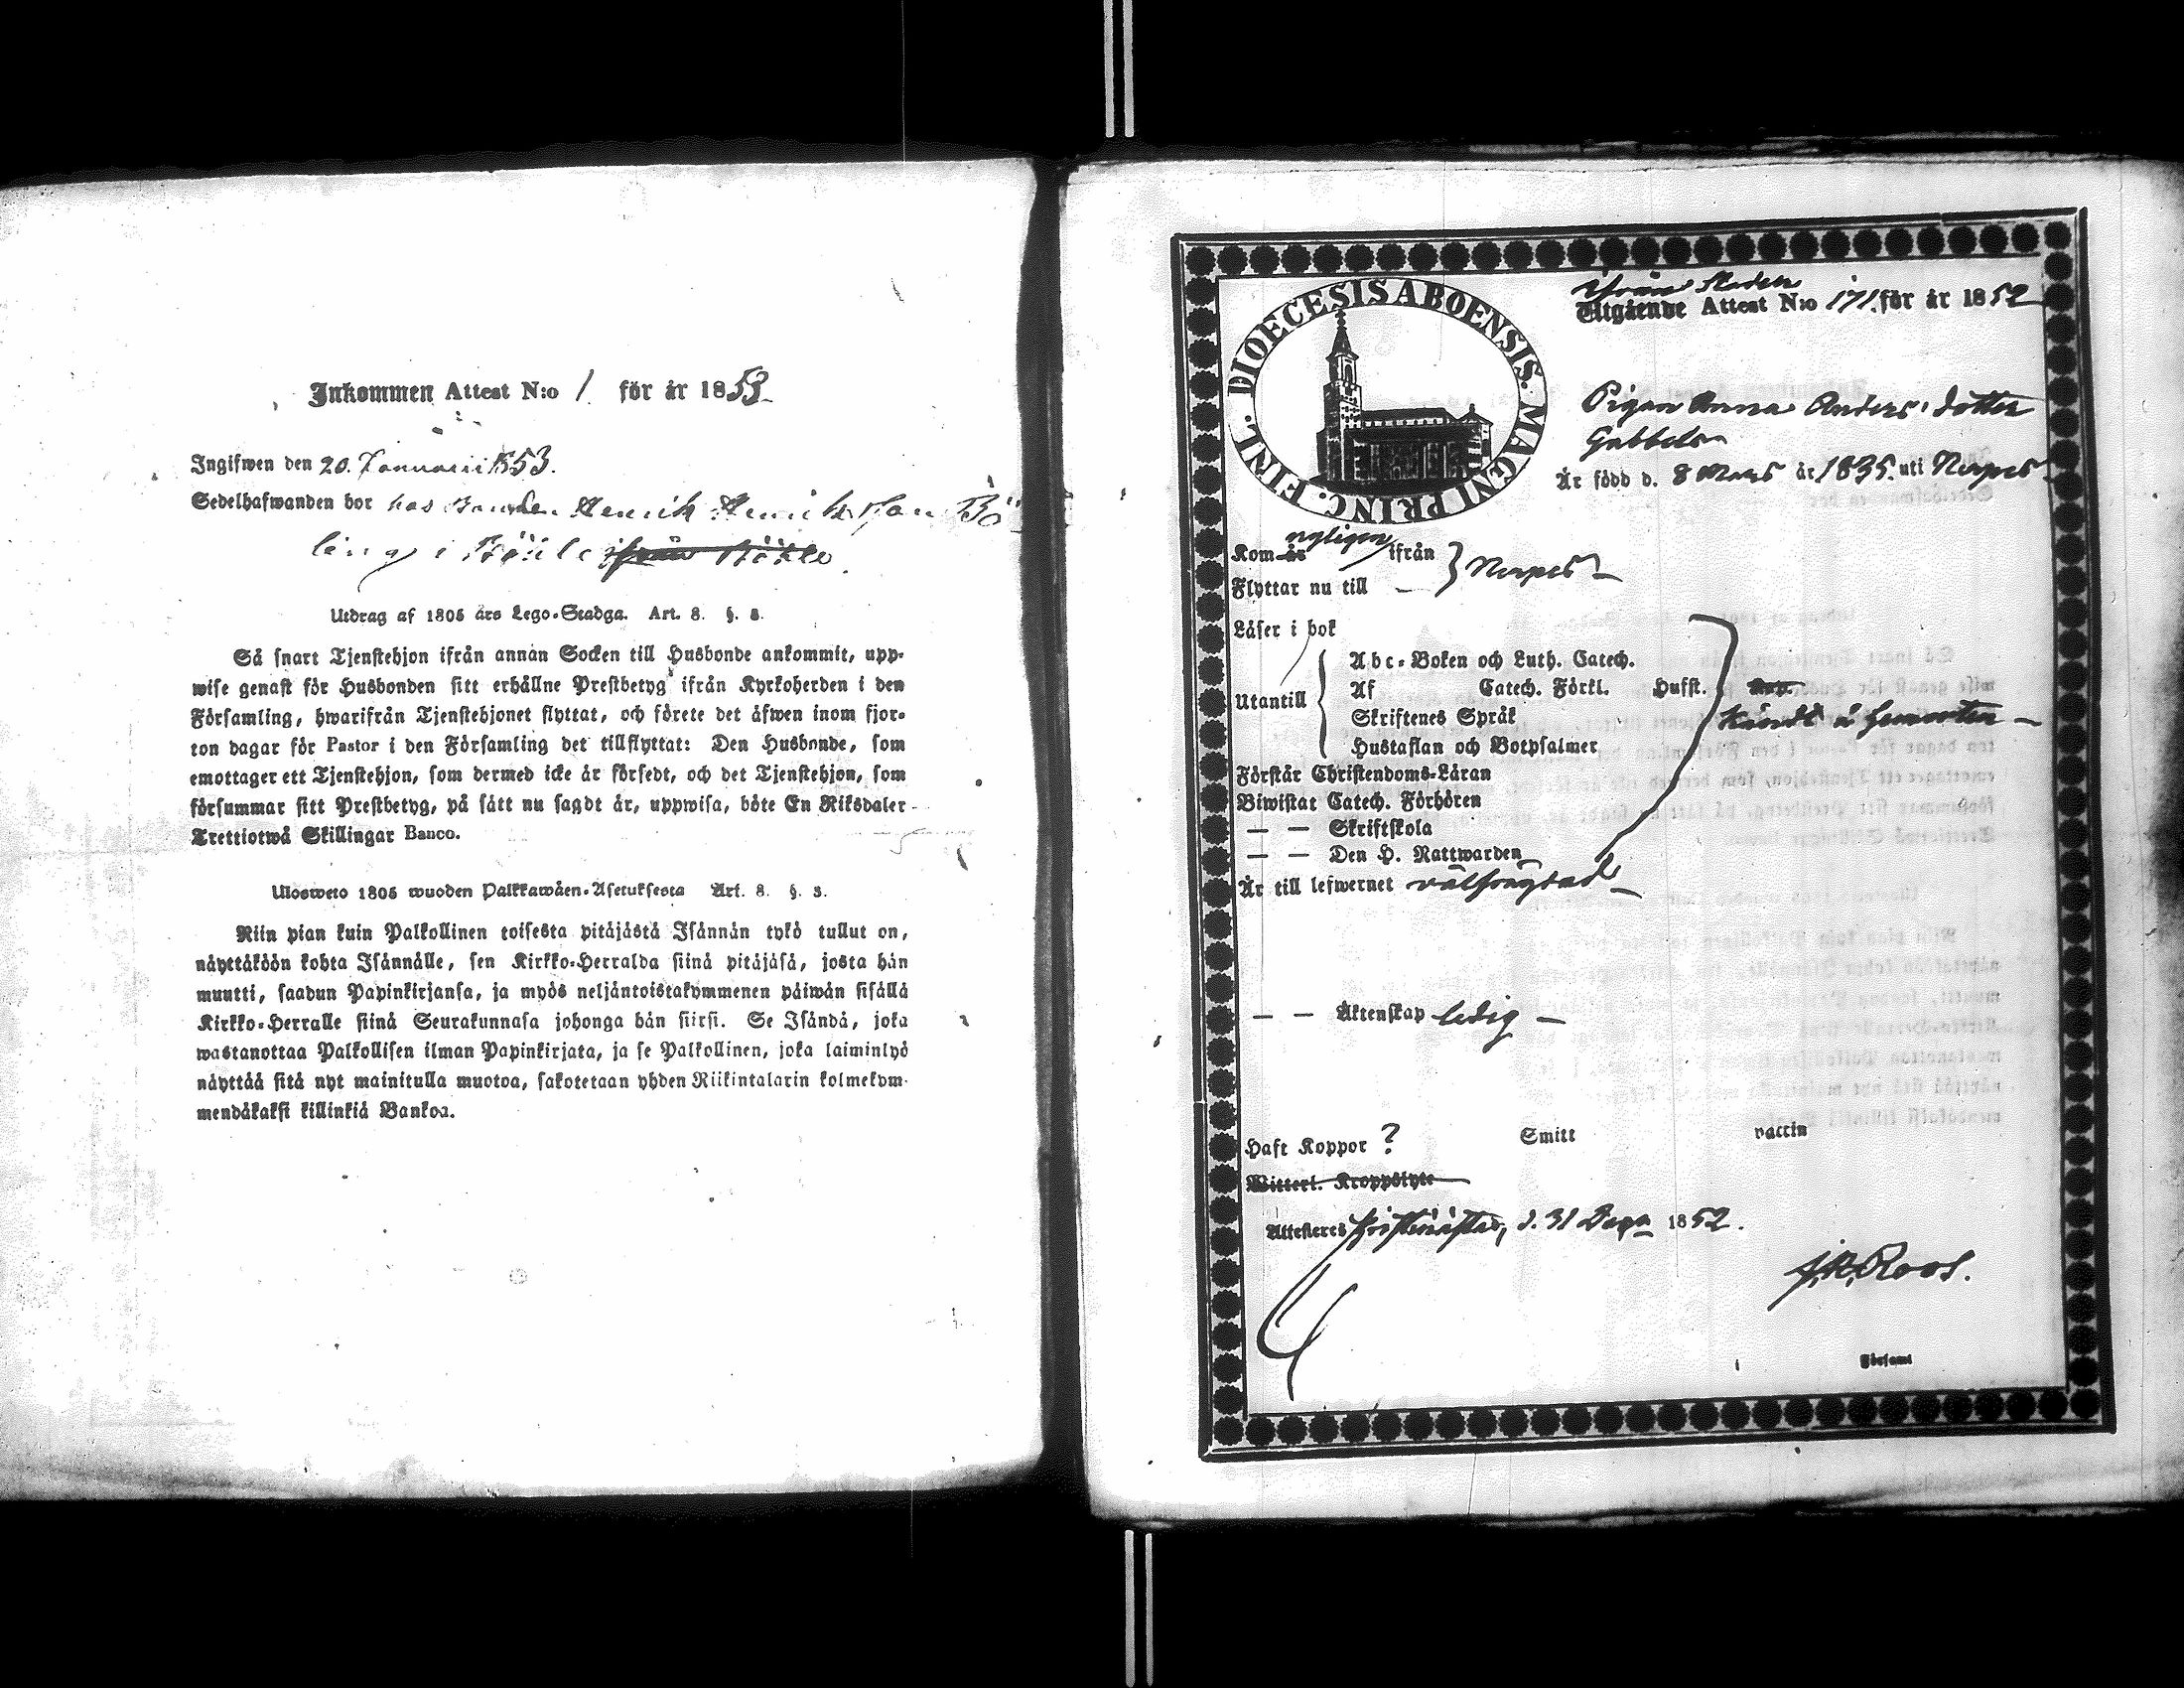 Inkommen Attest N:o 1 för år 1853
Ingifwen den 20. Januarii 1853.
Sedelhafwanden bor hos Bonden Henrik Henriksson Bö
ling i Böhle ifrån Böhle
Utdrag af 1805 års Lego-Stadga. Art. 8. §. 8.
Så snart Tjenstehjon ifrån annan Socken till Husbonde ankommit, upp-
wise genast för Husbonden sitt erhållne Prestbetyg ifrån Kyrkoherden i den
Församling, hwarifrån Tjenstehjonet flyttat, och förete det äfwen inom fjor-
ton dagar för Pastor i den Församling det tillflyttat: Den Husbonde, som
emottager ett Tjenstehjon, som dermed icke är försedt, och det Tjenstehjon, som
försummar sitt Prestbetyg, på sätt nu sagdt är, uppwisa, böte En Riksdaler
Trettiotwå Skillingar Banco.
Ulosweto 1805 wuoden Palkkawäen-Asetuksesta Art. 8. §. 3.
Niin pian kuin Palkollinen toisesta pitäjästä Isännän tykö tullut on,
näyttäköön kohta Isännälle, sen Kirkko-Herralda siinä pitäjäsä, josta hän
muutti, saadun Papinkirjansa, ja myös neljäntoistakymmenen päiwän sisällä
Kirkko-Herralle siinä Seurakunnasa johonga hän siirsi. Se Isändä, joka
wastanottaa Palkollisen ilman Papinkirjata, ja se Palkollinen, joka laiminlyö
näyttää sitä nyt mainitulla muotoa, sakotetaan yhden Riikintalarin kolmekym-
mendäkaksi killinkiä Bankoa.
DIOECESIS ABOENSIS. MAGNI PRINC. FINL.
ifrån Staden
Utgående Attest N:o 171. för år 1852
Pigan Anna Anders dotter
Gabbels
Är född d. 8 Mars år 1835. uti Nerpes
Kom år nyligen ifrån
Flyttar nu till — Nerpes
Läser i bok
Utantill
Abc-Boken och Luth. Catech.
Af Catech. Förkl. Husst.
Skriftenes Språk
Hustaflan och Botpsalmer
Kändt å hemorten
Förstår Christendoms-Läran
Biwistat Catech. Förhören
— — Skriftskola
— — Den H. Nattwarden
Är till lefwernet välfrägdad
— — Äktenskap ledig
Haft Koppor ? Smitt vaccin
Witterl. Kroppslyte
Attesteres Kristinæstad, d. 31 Decr 1852.
J. R. Roos.
Församl